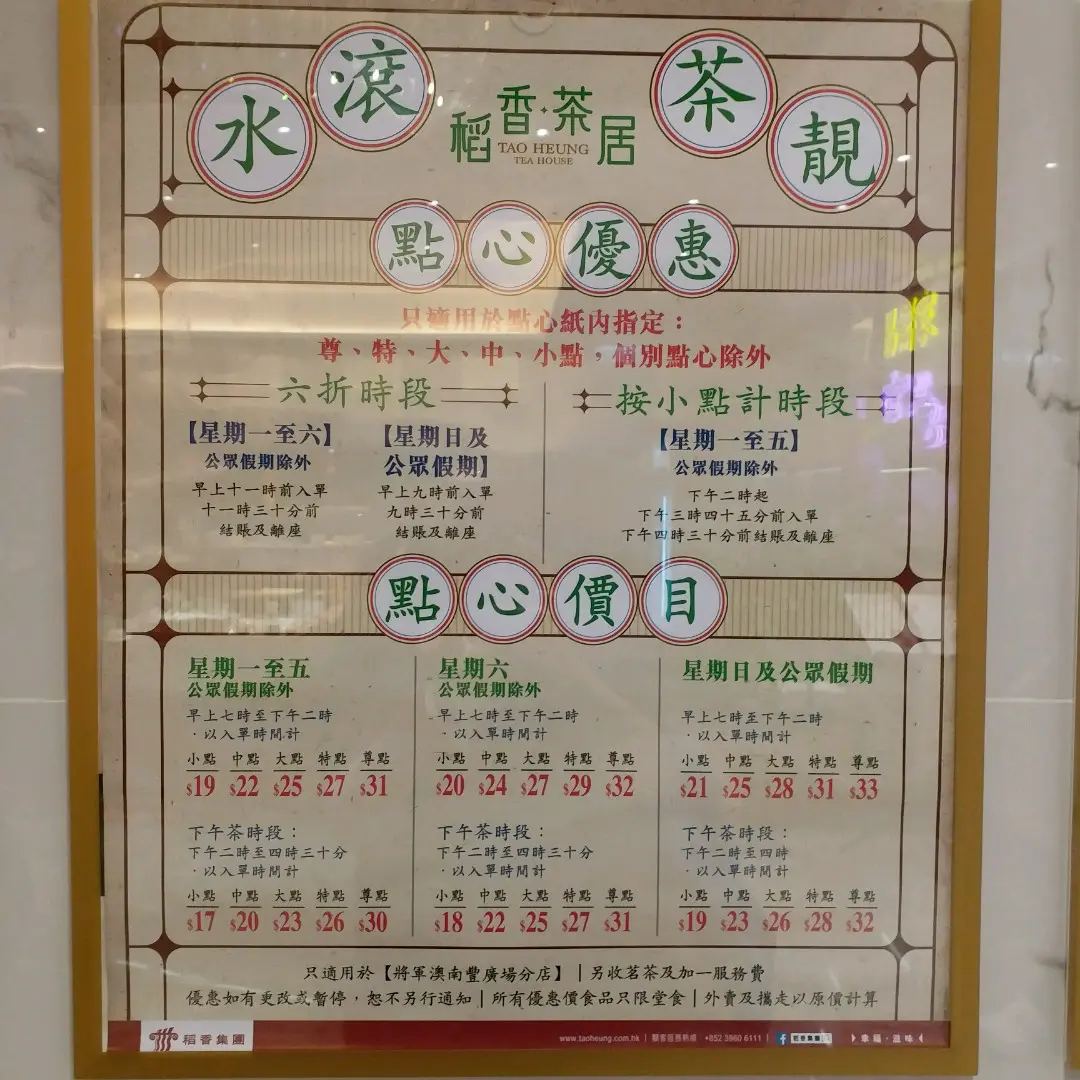 水滾茶靚
稻香·茶居
TAO HEUNG
TEA HOUSE
點心優惠
只適用於點心紙內指定：
尊、特、大、中、小點，個別點心除外
六折時段
【星期一至六】
公眾假期除外
早上十一時前入單
十一時三十分前
結賬及離座
【星期日及
公眾假期】
早上九時前入單
九時三十分前
結賬及離座
按小點計時段
【星期一至五】
公眾假期除外
下午二時起
下午三時四十五分前入單
下午四時三十分前結賬及離座
點心價目
星期一至五
公眾假期除外
早上七時至下午二時
·以入單時間計
小點 中點 大點 特點 尊點
$19 $22 $25 $27 $31
下午茶時段：
下午二時至四時三十分
·以入單時間計
小點 中點 大點 特點 尊點
$17 $20 $23 $26 $30
星期六
公眾假期除外
早上七時至下午二時
·以入單時間計
小點 中點 大點 特點 尊點
$20 $24 $27 $29 $32
下午茶時段：
下午二時至四時三十分
·以入單時間計
小點 中點 大點 特點 尊點
$18 $22 $25 $27 $31
星期日及公眾假期
早上七時至下午二時
·以入單時間計
小點 中點 大點 特點 尊點
$21 $25 $28 $31 $33
下午茶時段：
下午二時至四時
·以入單時間計
小點 中點 大點 特點 尊點
$19 $23 $26 $28 $32
只適用於【將軍澳南豐廣場分店】|另收茗茶及加一服務費
優惠如有更改或暫停，恕不另行通知|所有優惠價食品只限堂食|外賣及攜走以原價計算
稻香集團
www.taoheung.com.hk | 顧客服務熱線 +852 3960 6111 | 稻香集團
幸福·滋味